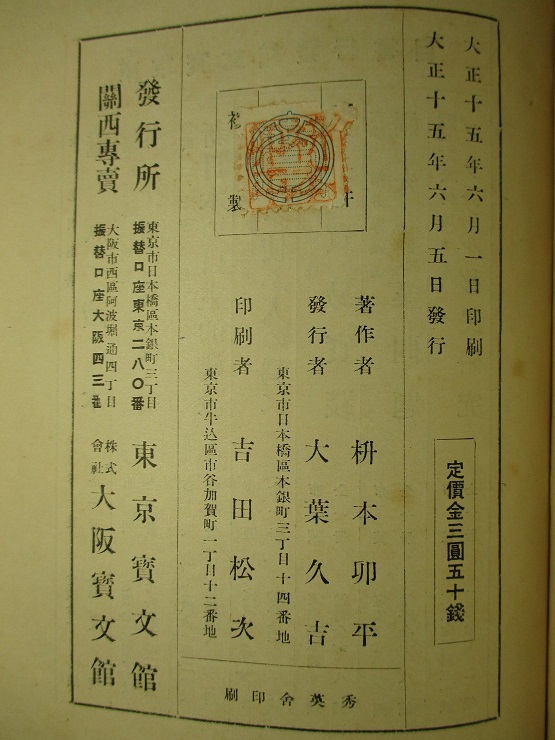 大正十五年六月一日印刷
大正十五年六月五日發行
定價金三圓五十錢
著作者 枡本卯平
發行者 大葉久吉
東京市日本橋區本銀町三丁目十四番地
印刷者 吉田松次
東京市牛込區市谷加賀町一丁目十二番地
秀英舍印刷
發行所 東京市日本橋區本銀町三丁目 振替口座東京二八〇番 東京寶文館
關西專賣 大阪市西區阿波堀通四丁目 振替口座大阪四三番 株式會社 大阪寶文館